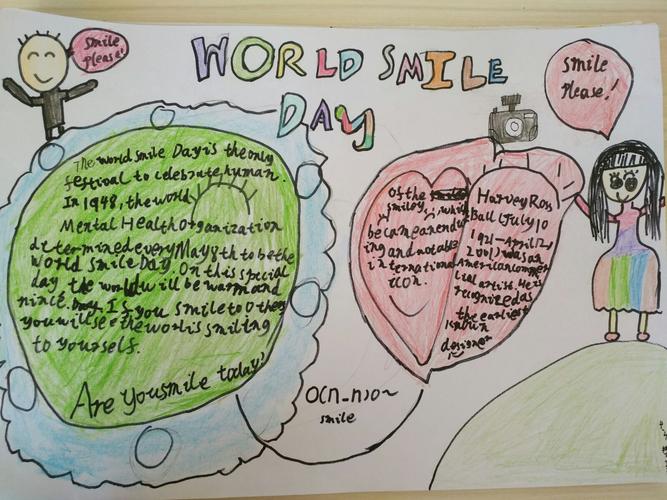 WORLD SMILE
DAY
smile
please!
smile
please!
The world smile Day is the only
festival to celebrate human.
In 1948, the world
Mental Health Organization
determined every May 8th to be the
world smile Day. On this special
day the world will be warm and
If you smile to others
you will see the world is smiling
to yourself.
Are you smile today?
of the
smiley, while
became an endur
ing and notable
international
icon.
Harvey Ross
Ball (July 10
1921-April 12,
2001) was an
American commer
cial artist. He is
recognized as
the earliest
known
designer
O(∩_∩)O~
smile